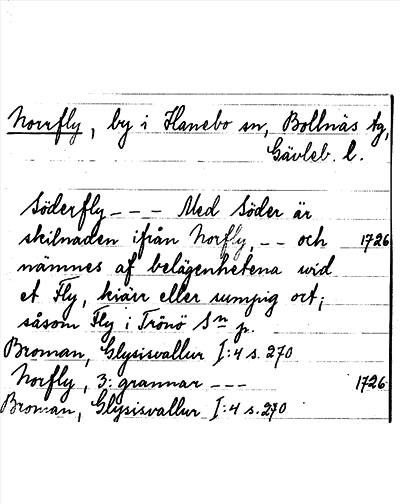 Norrfly, by i Hanebo sn, Bollnäs tg,
Gävleb. l.
Söderfly - - - Med Söder är
skilnaden ifrån Norfly, - - och 1726
nämnes af belägenhetena wid
et Fly, kiärr eller sumpig ort;
såsom Fly i Trönö Sn p.
Broman, Glysisvallur I:4 s. 270
Norfly, 3: grannar - - - 1726
Broman, Glysisvallur I:4 s. 270